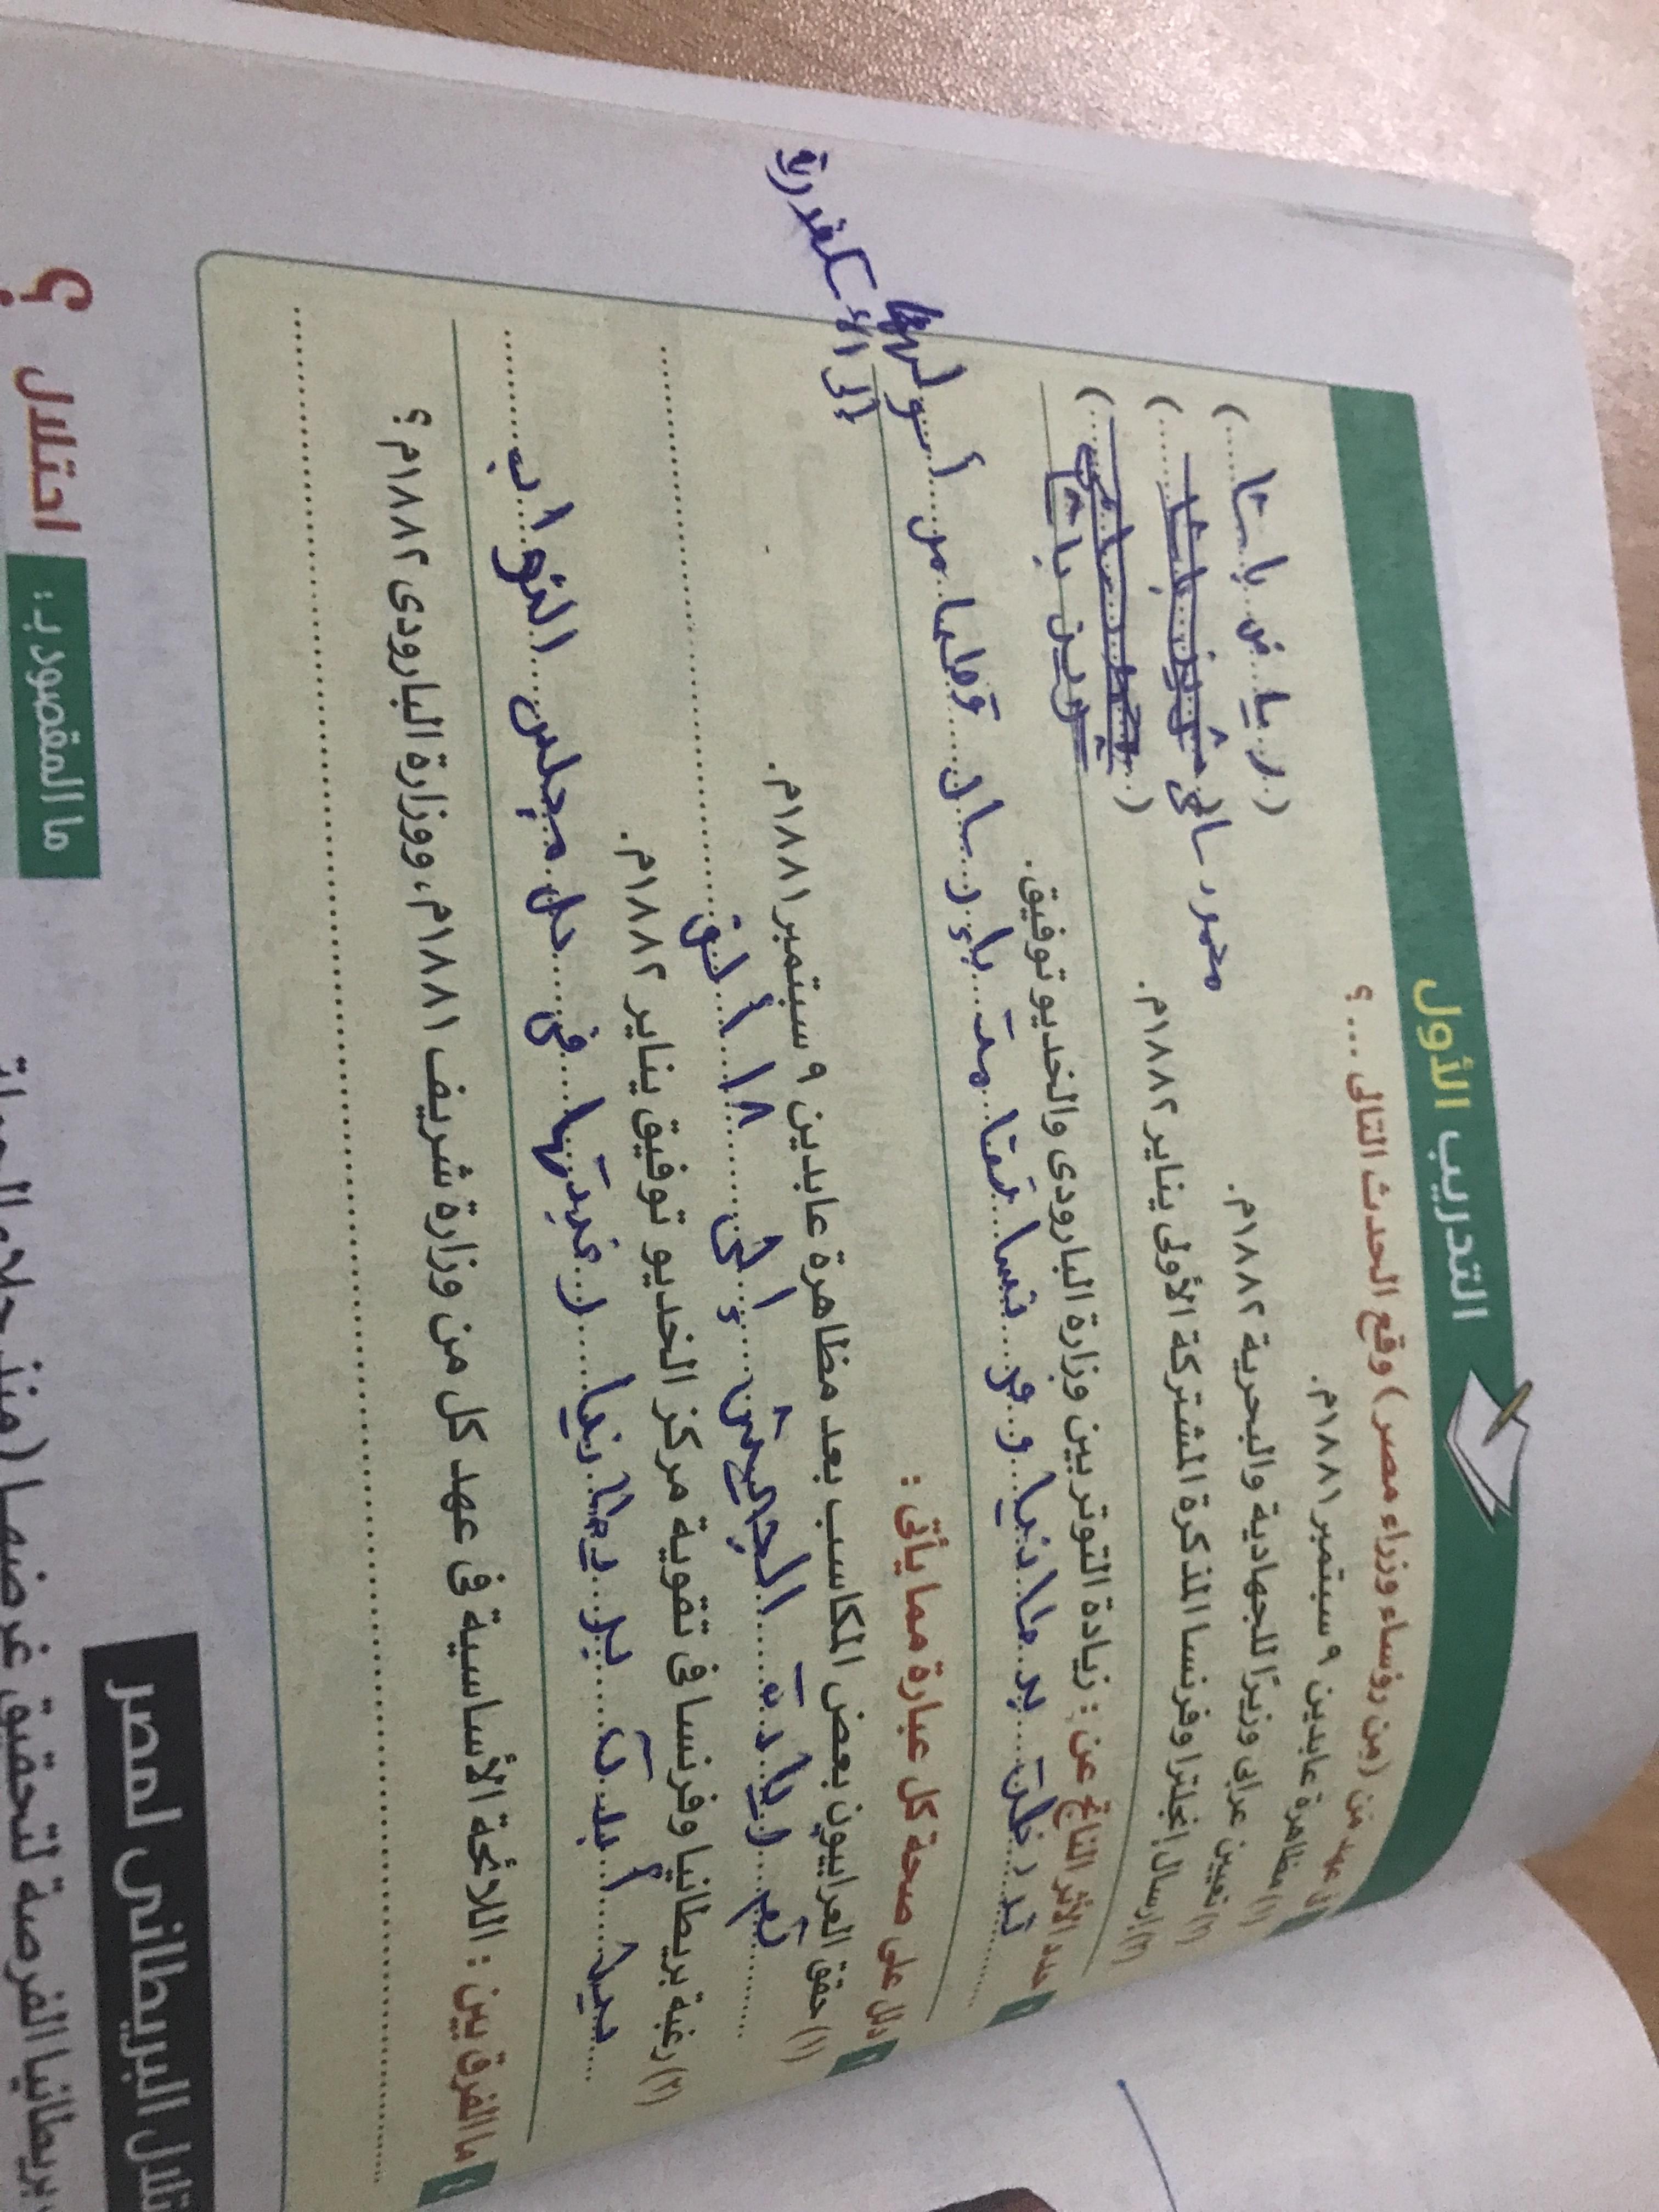 التدريب الأول
فى عهد مَن (مِن رؤساء وزراء مصر) وقع الحدث التالى ... ؟
(١) مظاهرة عابدين ٩ سبتمبر ١٨٨١م. (رياض باشا)
(٢) تعيين عرابى وزيرًا للجهادية والبحرية ١٨٨٢م. محمود سامى
(٣) إرسال إنجلترا وفرنسا المذكرة المشتركة الأولى يناير ١٨٨٢م.
شريف باشا
٢ حدد الأثر الناتج عن : زيادة التوتر بين وزارة البارودى والخديو توفيق.
تدخلت بريطانيا وفرنسا قامتا بإرسال قطعا من أسولهما
إلى الأسكندرية
٣ دلل على صحة كل عبارة مما يأتى :
(١) حقق العرابيون بعض المكاسب بعد مظاهرة عابدين ٩ سبتمبر ١٨٨١م.
تم زيادة الجيش إلى ١٨ ألف
(٢) رغبة بريطانيا وفرنسا فى تقوية مركز الخديو توفيق يناير ١٨٨٢م.
حيث أبدت بريطانيا رغبتها فى حل مجلس النواب
٤ ما الفرق بين : اللائحة الأساسية فى عهد كل من وزارة شريف ١٨٨١م، ووزارة البارودى ١٨٨٢م ؟
البريطانى لمصر
ما المقصود بـ :
احتلال
بريطانيا الفرصة لتحقيق غرضها (منذ جلاء